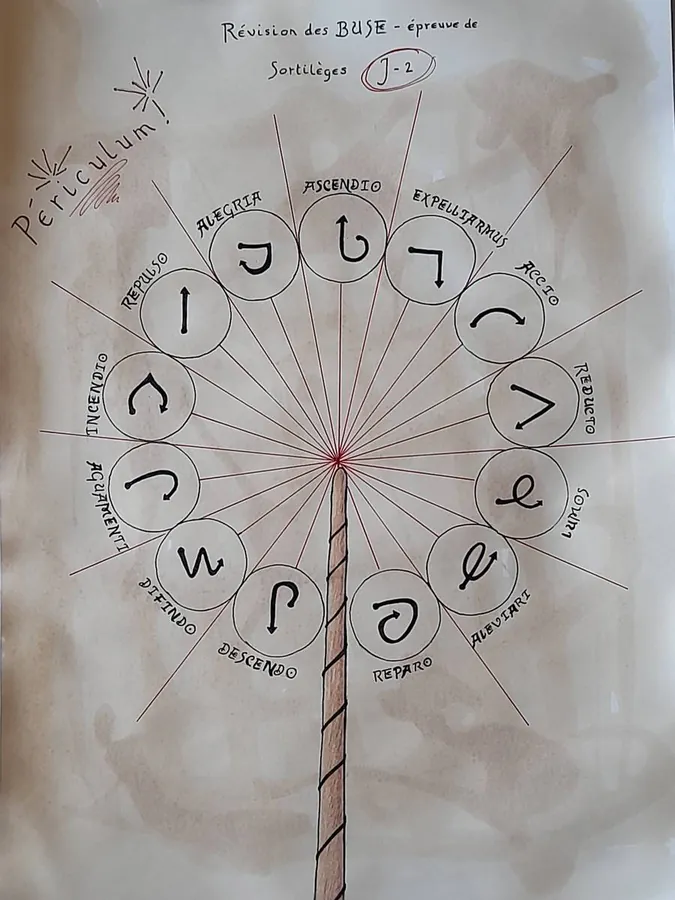 Révision des BUSE - épreuve de
Sortilèges J-2
Périculum!
ASCENDIO
EXPELLIARMUS
ACCIO
REDUCTO
ALEVIARI
REPARO
DESCENDO
DIFINDO
AGUAMENTI
INCENDIO
REPULSO
ALEGRIA